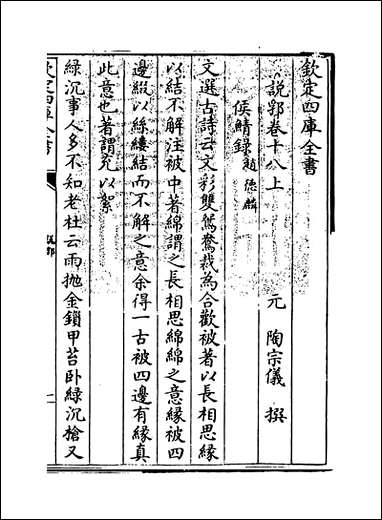 欽定四庫全書
說郛卷十八上
元 陶宗儀 撰
侯鯖錄 趙德麟
文選古詩云文彩雙鴛鴦裁為合歡被著以長相思緣
以結不解注被中著綿謂之長相思綿綿之意緣被四
邊綴以絲縷結而不解之意余得一古被四邊有緣真
此意也著謂充以絮
綠沉事人多不知老杜云雨抛金鎖甲苔卧綠沉槍又
欽定四庫全書
說郛